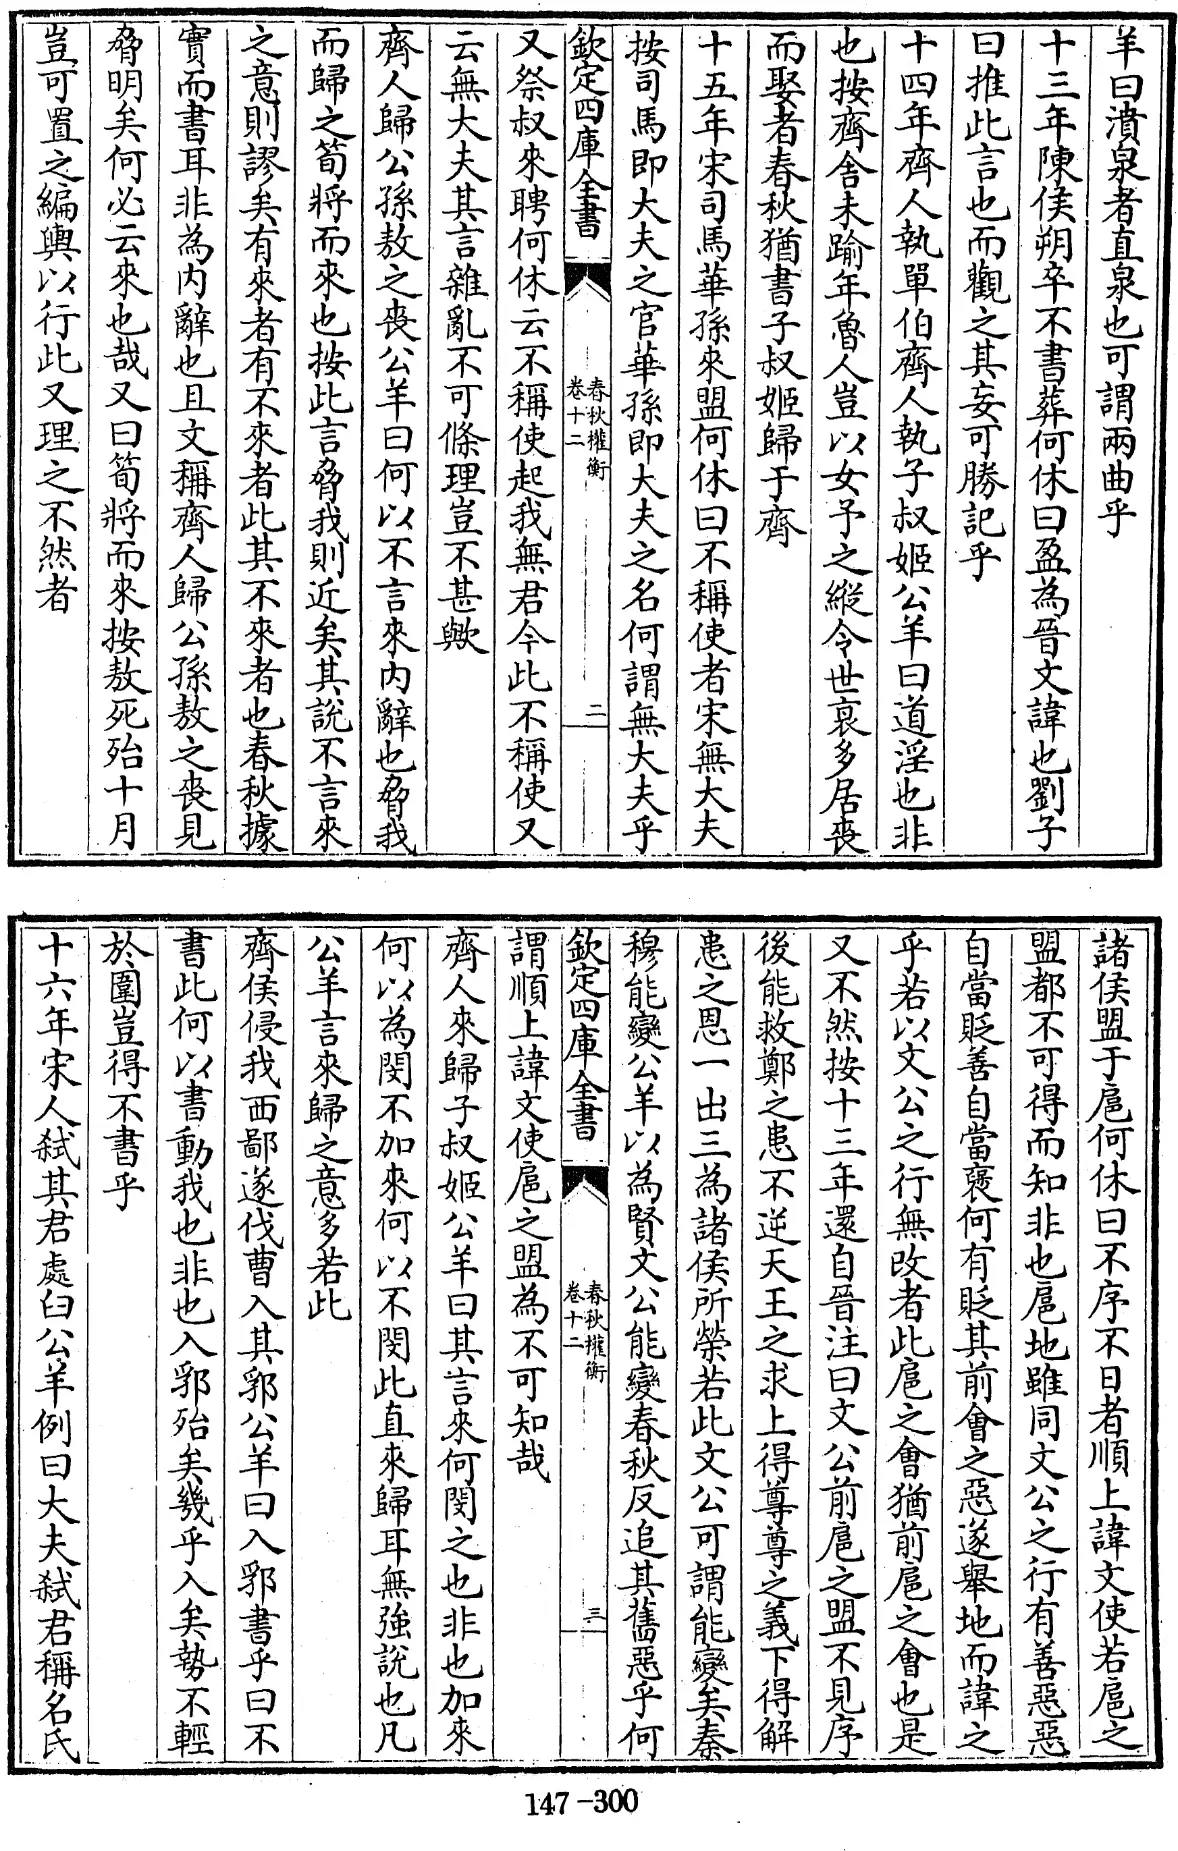 羊曰濆泉者直泉也可謂兩曲乎
十三年陳侯朔卒不書葬何休曰盈為晉文諱也劉子
曰推此言也而觀之其妄可勝記乎
十四年齊人執單伯齊人執子叔姬公羊曰道淫也非
也按齊舍未踰年魯人豈以女予之縱令世衰多居喪
而娶者春秋猶書子叔姬歸于齊
十五年宋司馬華孫來盟何休曰不稱使者宋無大夫
按司馬即大夫之官華孫即大夫之名何謂無大夫乎
欽定四庫全書
春秋權衡
卷十二
二
又祭叔來聘何休云不稱使起我無君今此不稱使又
云無大夫其言雜亂不可條理豈不甚歟
齊人歸公孫敖之喪公羊曰何以不言來内辭也脅我
而歸之筍將而來也按此言脅我則近矣其說不言來
之意則謬矣有來者有不來者此其不來者也春秋據
實而書耳非為内辭也且文稱齊人歸公孫敖之喪見
脅明矣何必云來也哉又曰筍將而來按敖死殆十月
豈可置之編輿以行此又理之不然者
諸侯盟于扈何休曰不序不日者順上諱文使若扈之
盟都不可得而知非也扈地雖同文公之行有善惡惡
自當貶善自當襃何有貶其前會之惡遂舉地而諱之
乎若以文公之行無改者此扈之會猶前扈之會也是
又不然按十三年還自晉注曰文公前扈之盟不見序
後能救鄭之患不逆天王之求上得尊尊之義下得解
患之恩一出三為諸侯所榮若此文公可謂能變矣秦
穆能變公羊以為賢文公能變春秋反追其舊惡乎何
欽定四庫全書
春秋權衡
卷十二
三
謂順上諱文使扈之盟為不可知哉
齊人來歸子叔姬公羊曰其言來何閔之也非也加來
何以為閔不加來何以不閔此直來歸耳無強說也凡
公羊言來歸之意多若此
齊侯侵我西鄙遂伐曹入其郛公羊曰入郛書乎曰不
書此何以書動我也非也入郛殆矣幾乎入矣勢不輕
於圍豈得不書乎
十六年宋人弒其君處臼公羊例曰大夫弒君稱名氏
147-300